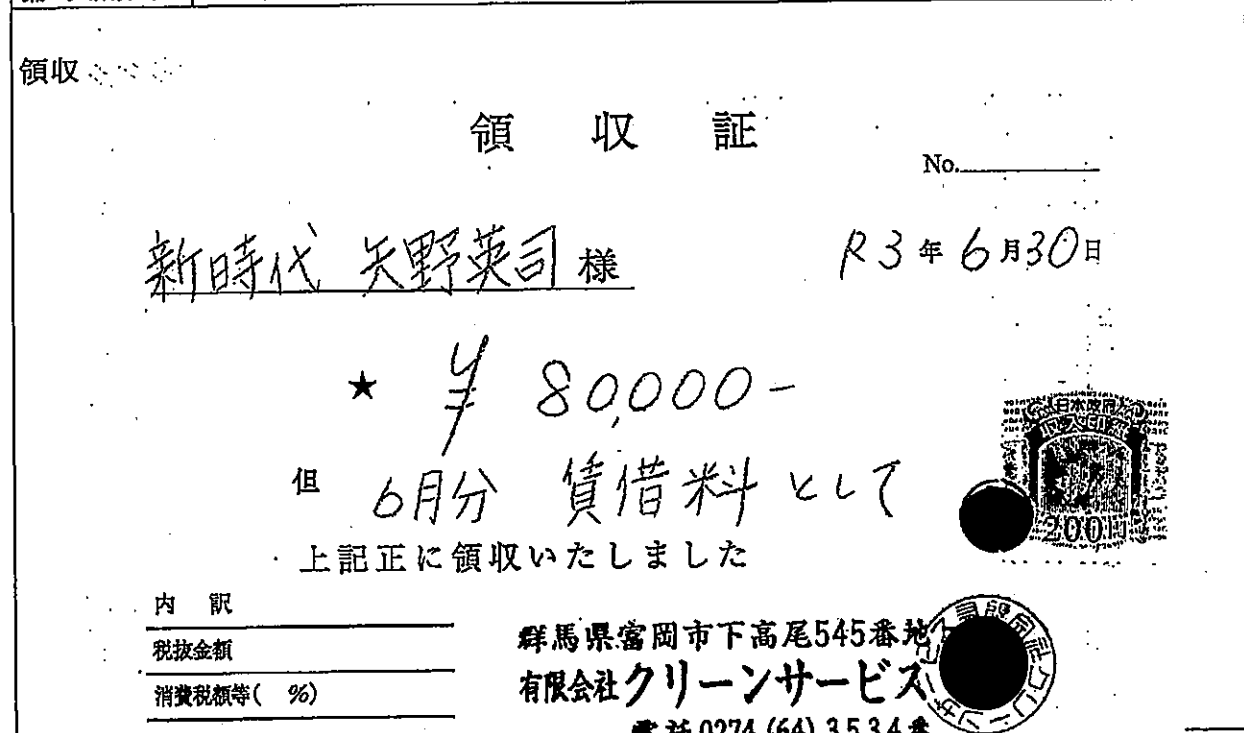 領収
領収証
No.
新時代 矢野英司 様
R3年6月30日
★ ¥ 80,000-
但 6月分 賃借料として
上記正に領収いたしました
日本政府
収入印紙
200円
内訳
税抜金額
消費税額等( %)
群馬県富岡市下高尾545番地
有限会社クリーンサービス
電話 0274 (64) 3534番